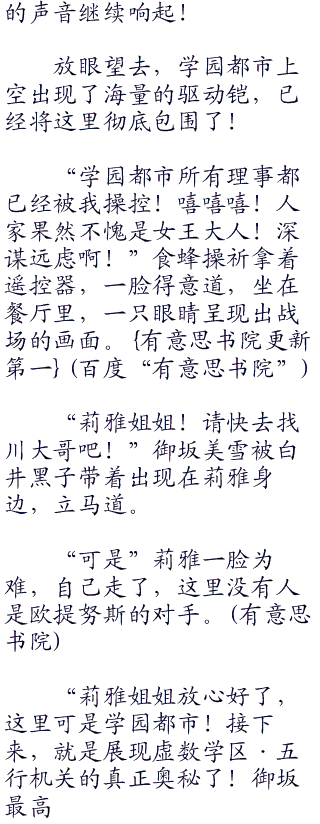 的声音继续响起！
放眼望去，学园都市上
空出现了海量的驱动铠，已
经将这里彻底包围了！
“学园都市所有理事都
已经被我操控！嘻嘻嘻！人
家果然不愧是女王大人！深
谋远虑啊！”食蜂操祈拿着
遥控器，一脸得意道，坐在
餐厅里，一只眼睛呈现出战
场的画面。{有意思书院更新
第一} (百度“有意思书院”)
“莉雅姐姐！请快去找
川大哥吧！”御坂美雪被白
井黑子带着出现在莉雅身
边，立马道。
“可是”莉雅一脸为
难，自己走了，这里没有人
是欧提努斯的对手。(有意思
书院)
“莉雅姐姐放心好了，
这里可是学园都市！接下
来，就是展现虚数学区·五
行机关的真正奥秘了！御坂
最高